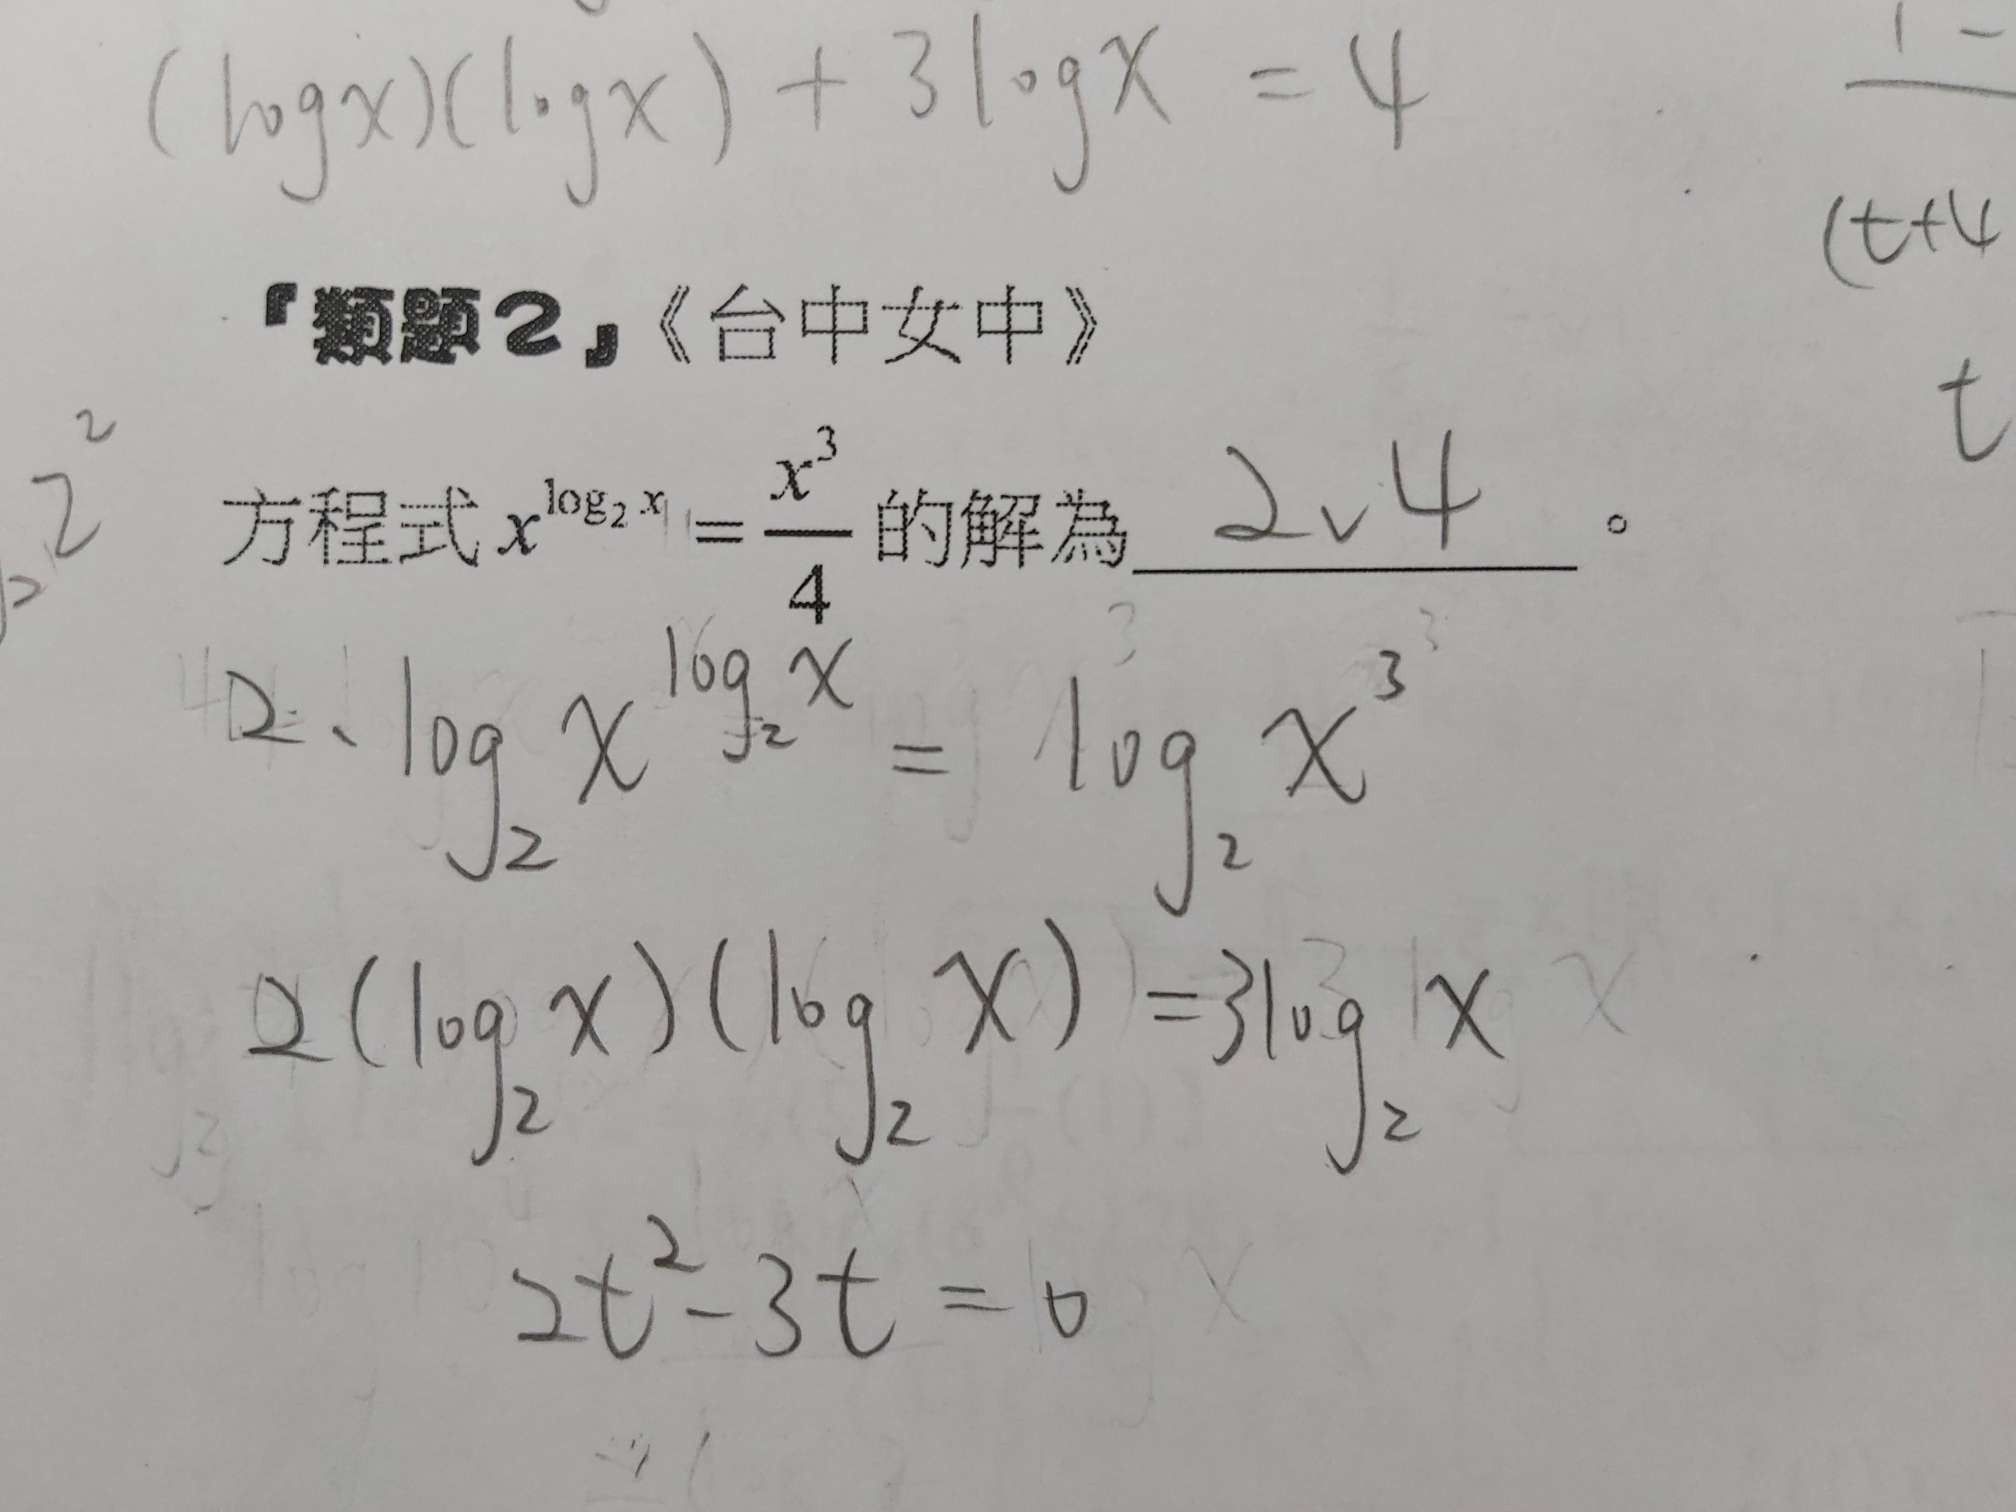 (logx)(logx) + 3logx = 4
1 -
(t+4
t
『類題2』《台中女中》
2²
方程式 x^{log₂ x} = x³/4 的解為 2、4 。
2 · log₂ x^{log₂ x} = log₂ x³
2(log₂ x)(log₂ x) = 3log₂ x
2t² - 3t = 0